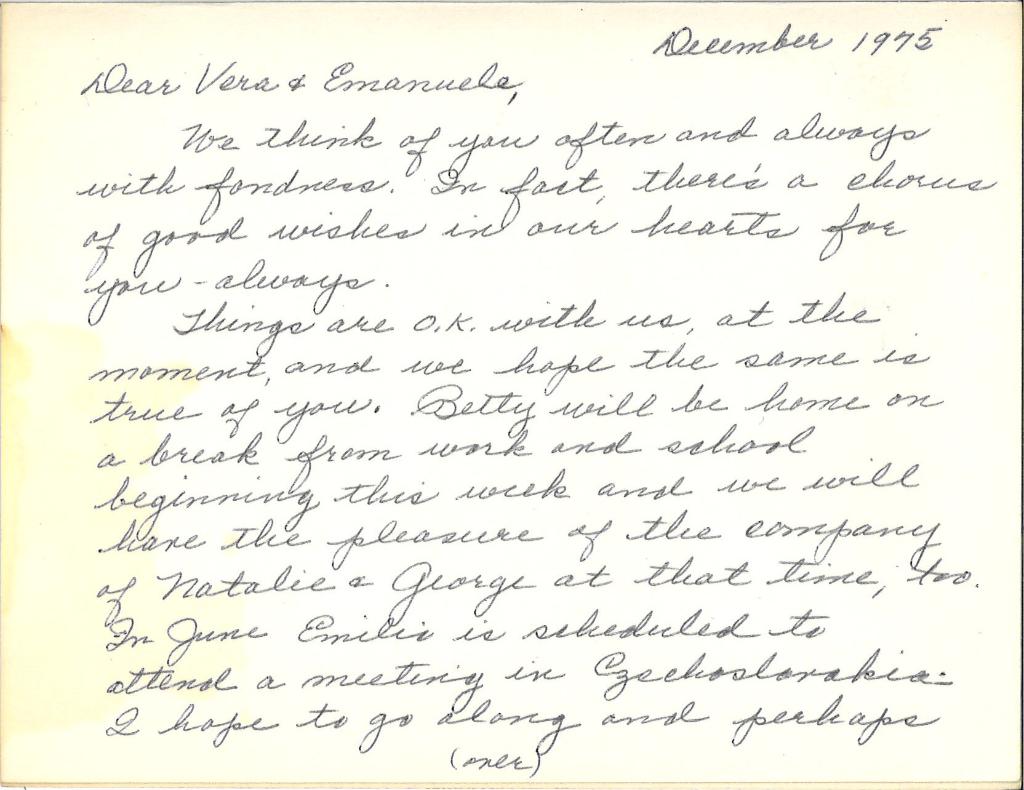 December 1975
Dear Vera & Emanuele,
We think of you often and always
with fondness. In fact, there's a chorus
of good wishes in our hearts for
you - always.
Things are O.K. with us, at the
moment, and we hope the same is
true of you. Betty will be home on
a break from work and school
beginning this week and we will
have the pleasure of the company
of Natalie & George at that time, too.
In June Emilio is scheduled to
attend a meeting in Czechoslovakia -
I hope to go along and perhaps
(over)